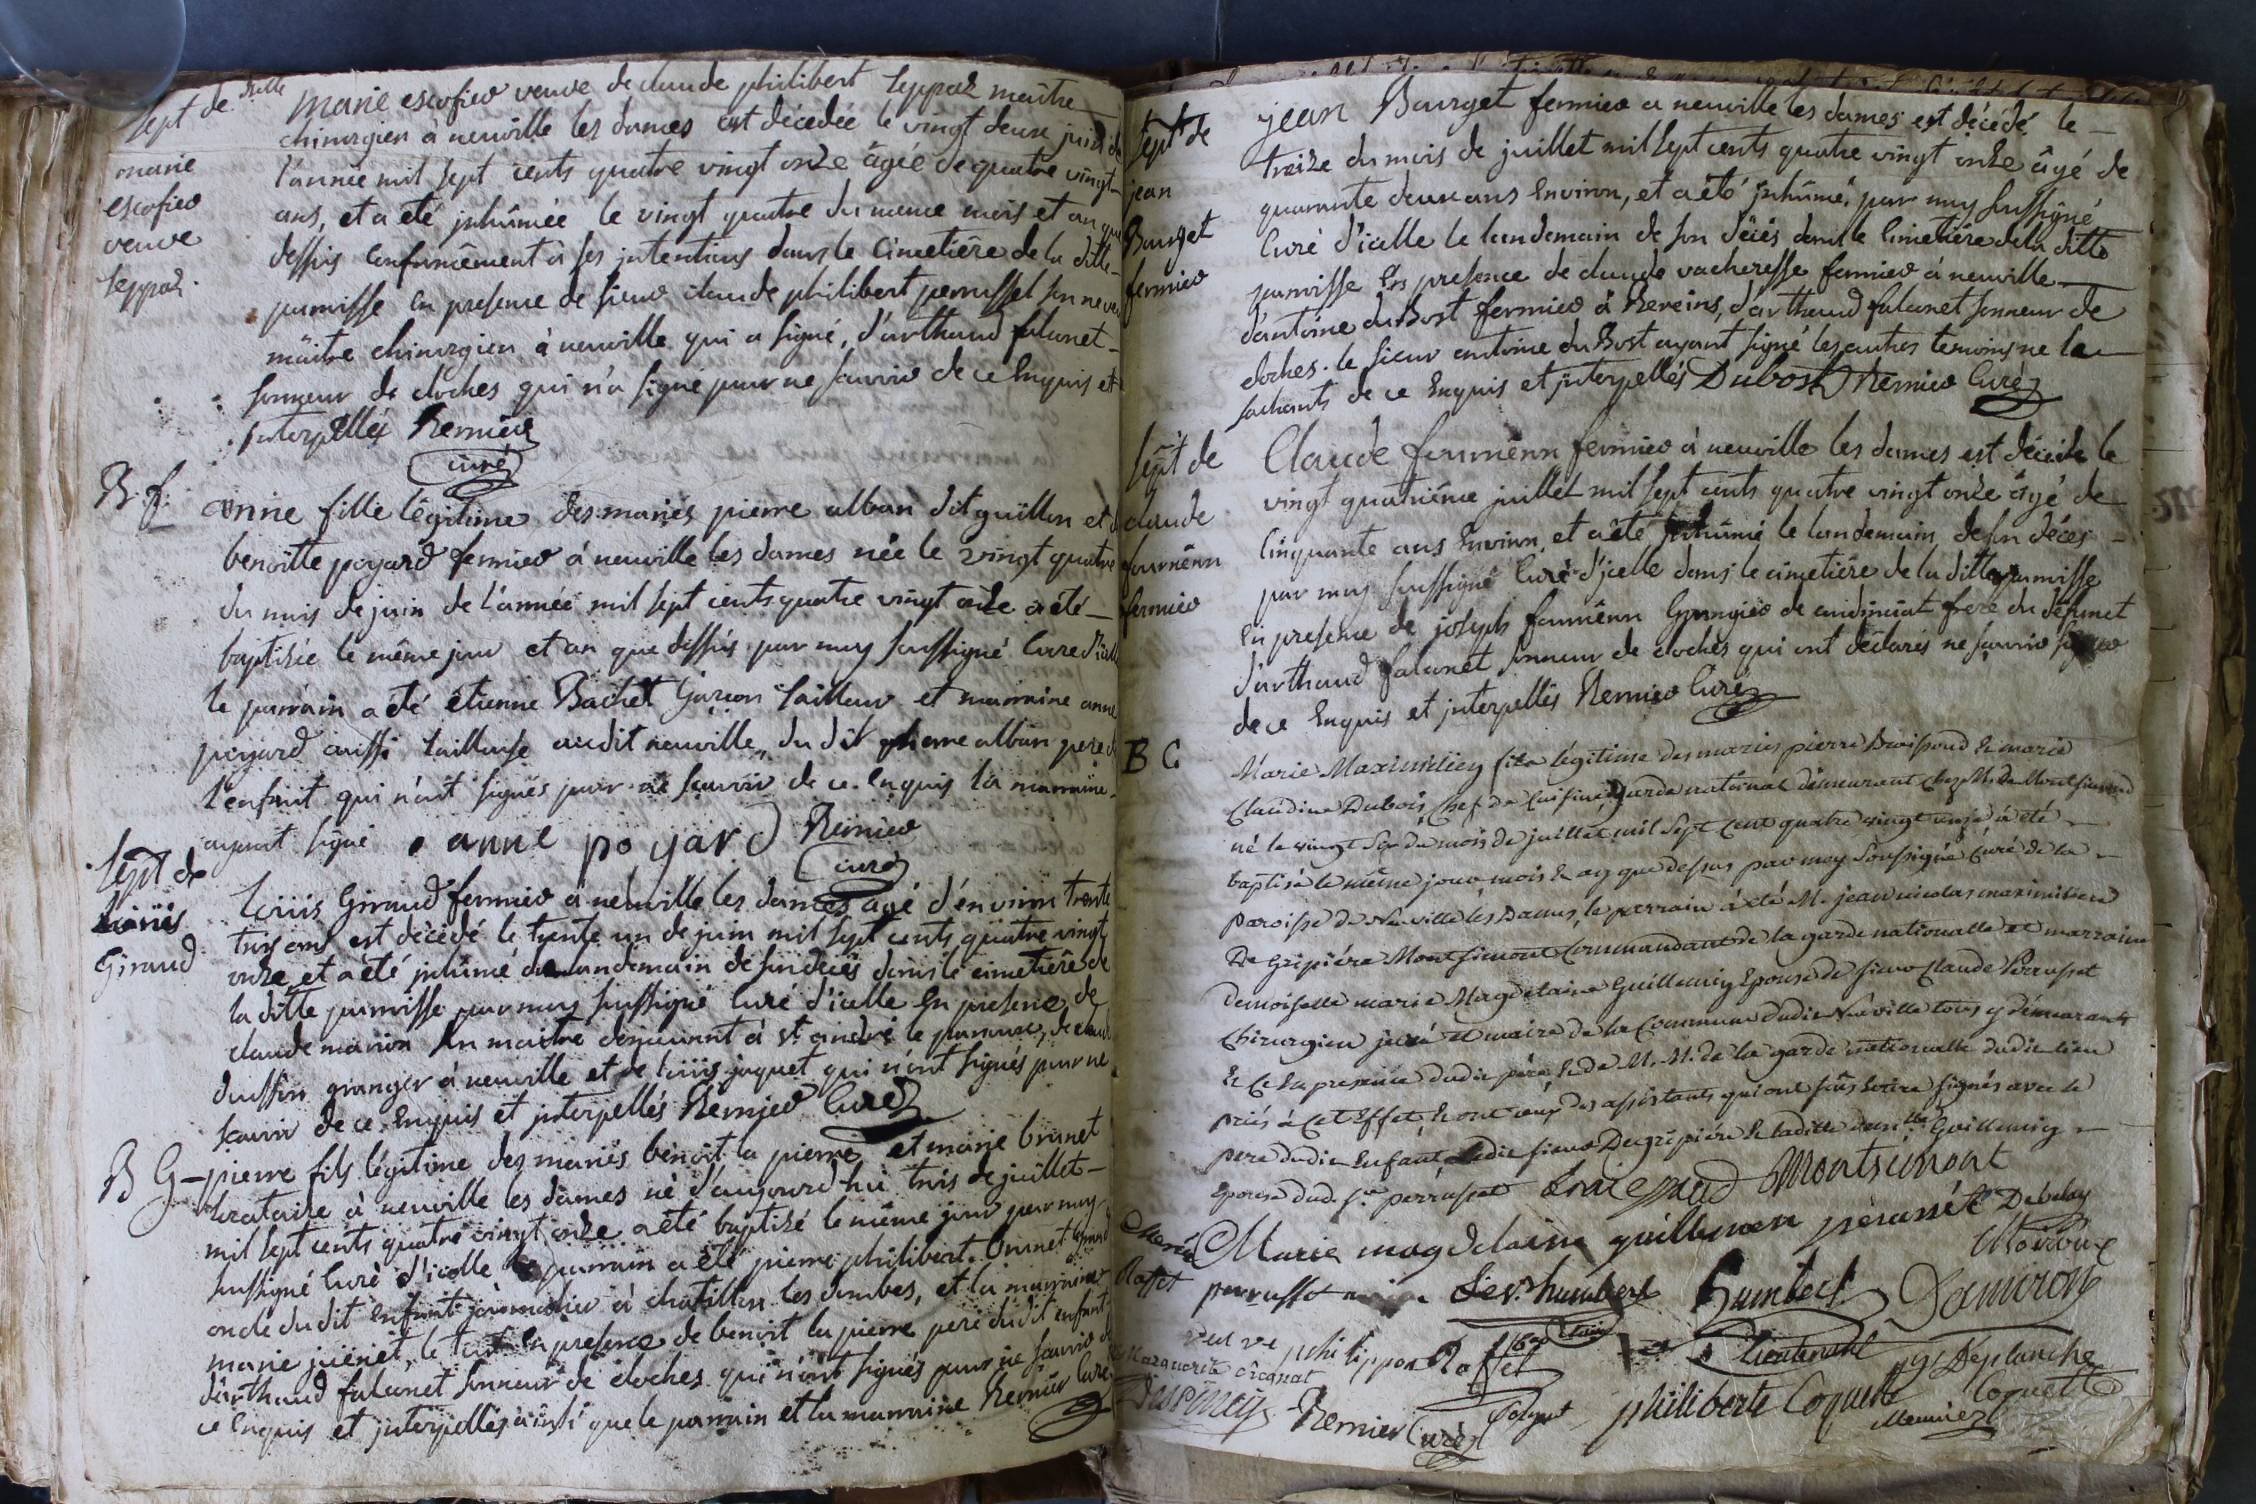 Sept de
marie
escofier
veuve
marie escofier veuve de claude philibert maitre
chirurgien à neuville les dames est décédée le vingt deux juin de
l'année mil sept cents quatre vingt onze âgée de quatre vingt
ans, et a été jnhûmée le vingt quatre du meme mois et an que
dessûs conformément à ses jntentions dans le cimetière de la ditte
parroisse en presence de sieur claude philibert perrussel son neveu
maitre chirurgien à neuville qui a signé, d'arthaud falconet
sonneur de cloches qui n'a signé pour ne sçavoir de ce enquis et
jnterpellés Remier
curé
B. f.
anne fille légitime des mariés pierre alban dit guillon et
benoitte poyard fermier à neuville les dames née le vingt quatre
du mois de juin de l'année mil sept cents quatre vingt onze a été
baptisée le même jour et an que dessûs par moy soussigné curé d'icelle
le parrain a été étienne Bachet garçon tailleur et marraine anne
poyard aussi tailleuse audit neuville, du dit pierre alban pere de
l'enfant qui n'ont signés pour ne sçavoir de ce enquis la marraine
ayant signé anne poyard Remier
curé
Sept de
Loüis
Giraud
Loüis Giraud fermier à neuville les dames âgé d'environ trente
trois ans est décédé le trente un de juin mil sept cents quatre vingt
onze, et a été jnhûmé le landemain de son décès dans le cimetière de
la ditte parroisse par moy soussigné curé d'icelle en presence de
claude marion maitre demeurant à st andré le panoux, de claude
granger à neuville et de loüis jaquet qui n'ont signés pour ne
scavoir de ce enquis et jnterpellés Remier Curé
B G
pierre fils légitime des mariés benoit la pierre et marie brunet
locataire à neuville les dames né d'aujourd'hui trois de juillet
mil sept cents quatre vingt onze a été baptisé le même jour par moy
soussigné curé d'icelle le parrain a été pierre philibert brunet
oncle dudit enfant à chatillon les dombes, et la marraine
marie le tout en presence de benoit la pierre pere dudit enfant
d'arthaud falconet sonneur de cloches qui n'ont signés pour ne sçavoir de
ce enquis et jnterpellés ainsi que le parrain et la marraine Remier Curé
Sept de
jean
Bourget
fermier
jean Bourget fermier a neuville les dames est décédé le
treize du mois de juillet mil sept cents quatre vingt onze âgé de
quarante deux ans environ, et a été jnhûmé par moy soussigné
curé d'icelle le landemain de son décès dans le cimetière de la ditte
parroisse en presence de claude vacheresse fermier à neuville
d'antoine du Bost fermier à Rereins, d'arthaud falconet sonneur de
cloches. le sieur antoine du Bost ayant signé les autres temoins ne le
sachants de ce enquis et jnterpellés Dubost Remier Curé
Sept de
claude
fermier
Claude fermier à neuville les dames est décédé le
vingt quatrième juillet mil sept cents quatre vingt onze âgé de
cinquante ans environ, et a été jnhûmé le landemain de son décès
par moy soussigné curé d'jcelle dans le cimetière de la ditte parroisse
en presence de joseph granger de frere du défunct
d'arthaud falconet sonneur de cloches qui ont déclarés ne sçavoir signer
de ce enquis et jnterpellés Remier Curé
B G
Marie Maximilien fils légitime des mariés pierre Braissoud et marie
Claudine Dubois Chef de Cuisine, garde national démeurant chez Mr de Montsimond
né le vingt Six du mois de juillet mil Sept Cent quatre vingt onze à été
baptisé le même jour mois et an que dessus par moy Soussigné curé de la
paroisse de Neuville les Dames, le parrain à été M. jean nicolas maximilien
De Gripiére Montsimont Commandant de la garde nationalle et marraine
demoiselle marie Magdelaine Guillemin Epouse de sieur Claude Perrusset
Chirurgien juré et maire de la Commune dudit Neuville tous y démeurants
et Ce En presence dudit pére, et de M. M. de la garde nationalle dudit lieu
priés à Cet Effet, et ont Ceux des assistants qui ont sûs Ecrire signés avec le
pere dudit Enfant, ledit sieur Degripiére et ladite demlle Guillemin
Epouse dud. Sr perrusset Montsimont
Marie magdelaine guillemen perussét Debeloy
perusset Humbert Lieutenant Damiron
philippon Raffet
veuve
Margueritte
Deplanche
philiberte Coquette Coquette
Remier Curé Meunier